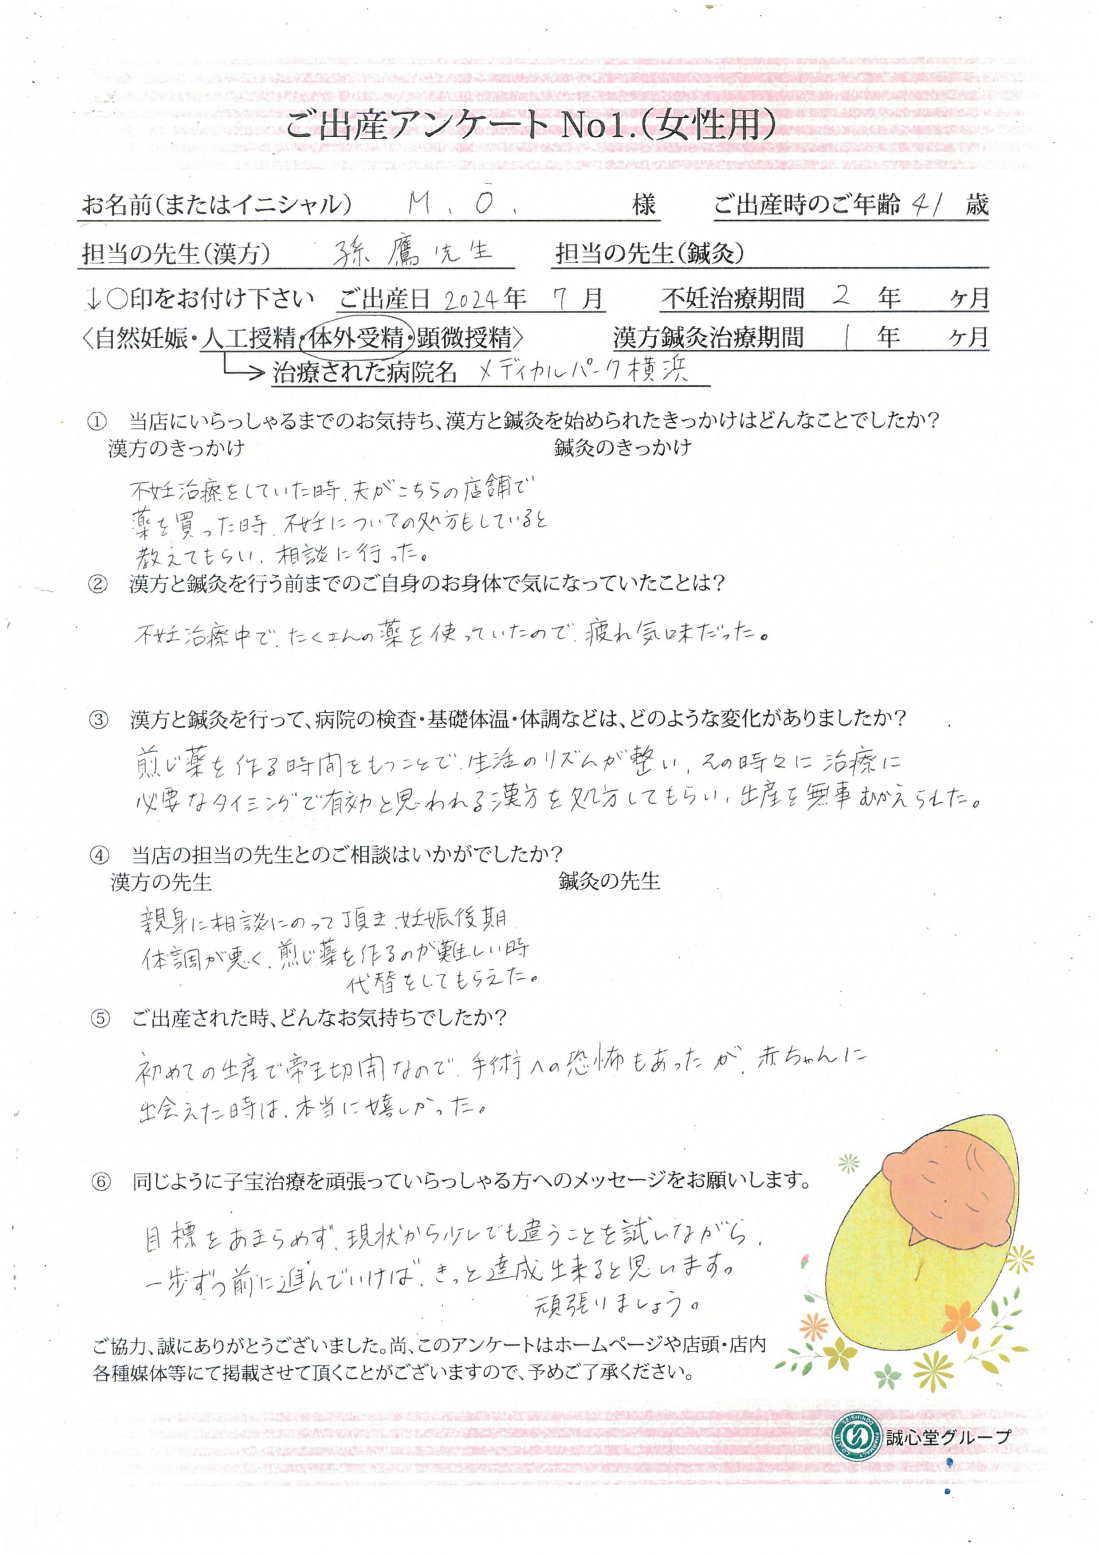 ご出産アンケート No1.(女性用)
お名前(またはイニシャル) M.O. 様 ご出産時のご年齢 41 歳
担当の先生(漢方) 孫 鷹 先生 担当の先生(鍼灸)
↓○印をお付け下さい ご出産日 2024年 7 月 不妊治療期間 2 年 ヶ月
〈自然妊娠・人工授精・体外受精・顕微授精〉 漢方鍼灸治療期間 1 年 ヶ月
治療された病院名 メディカルパーク横浜
① 当店にいらっしゃるまでのお気持ち、漢方と鍼灸を始められたきっかけはどんなことでしたか?
漢方のきっかけ 鍼灸のきっかけ
不妊治療をしていた時、夫がこちらの店舗で
薬を買った時、不妊についての処方もしていると
教えてもらい、相談に行った。
② 漢方と鍼灸を行う前までのご自身のお身体で気になっていたことは?
不妊治療中で、たくさんの薬を使っていたので、疲れ気味だった。
③ 漢方と鍼灸を行って、病院の検査・基礎体温・体調などは、どのような変化がありましたか?
煎じ薬を作る時間をもつことで、生活のリズムが整い、その時々に治療に
必要なタイミングで有効と思われる漢方を処方してもらい、出産を無事むかえられた。
④ 当店の担当の先生とのご相談はいかがでしたか?
漢方の先生 鍼灸の先生
親身に相談にのって頂き、妊娠後期
体調が悪く、煎じ薬を作るのが難しい時
代替をしてもらえた。
⑤ ご出産された時、どんなお気持ちでしたか?
初めての出産で帝王切開なので、手術への恐怖もあったが、赤ちゃんに
出会えた時は、本当に嬉しかった。
⑥ 同じように子宝治療を頑張っていらっしゃる方へのメッセージをお願いします。
目標をあきらめず、現状から少しでも違うことを試しながら、
一歩ずつ前に進んでいけば、きっと達成出来ると思います。
頑張りましょう。
ご協力、誠にありがとうございました。尚、このアンケートはホームページや店頭・店内
各種媒体等にて掲載させて頂くことがございますので、予めご了承ください。
誠心堂グループ